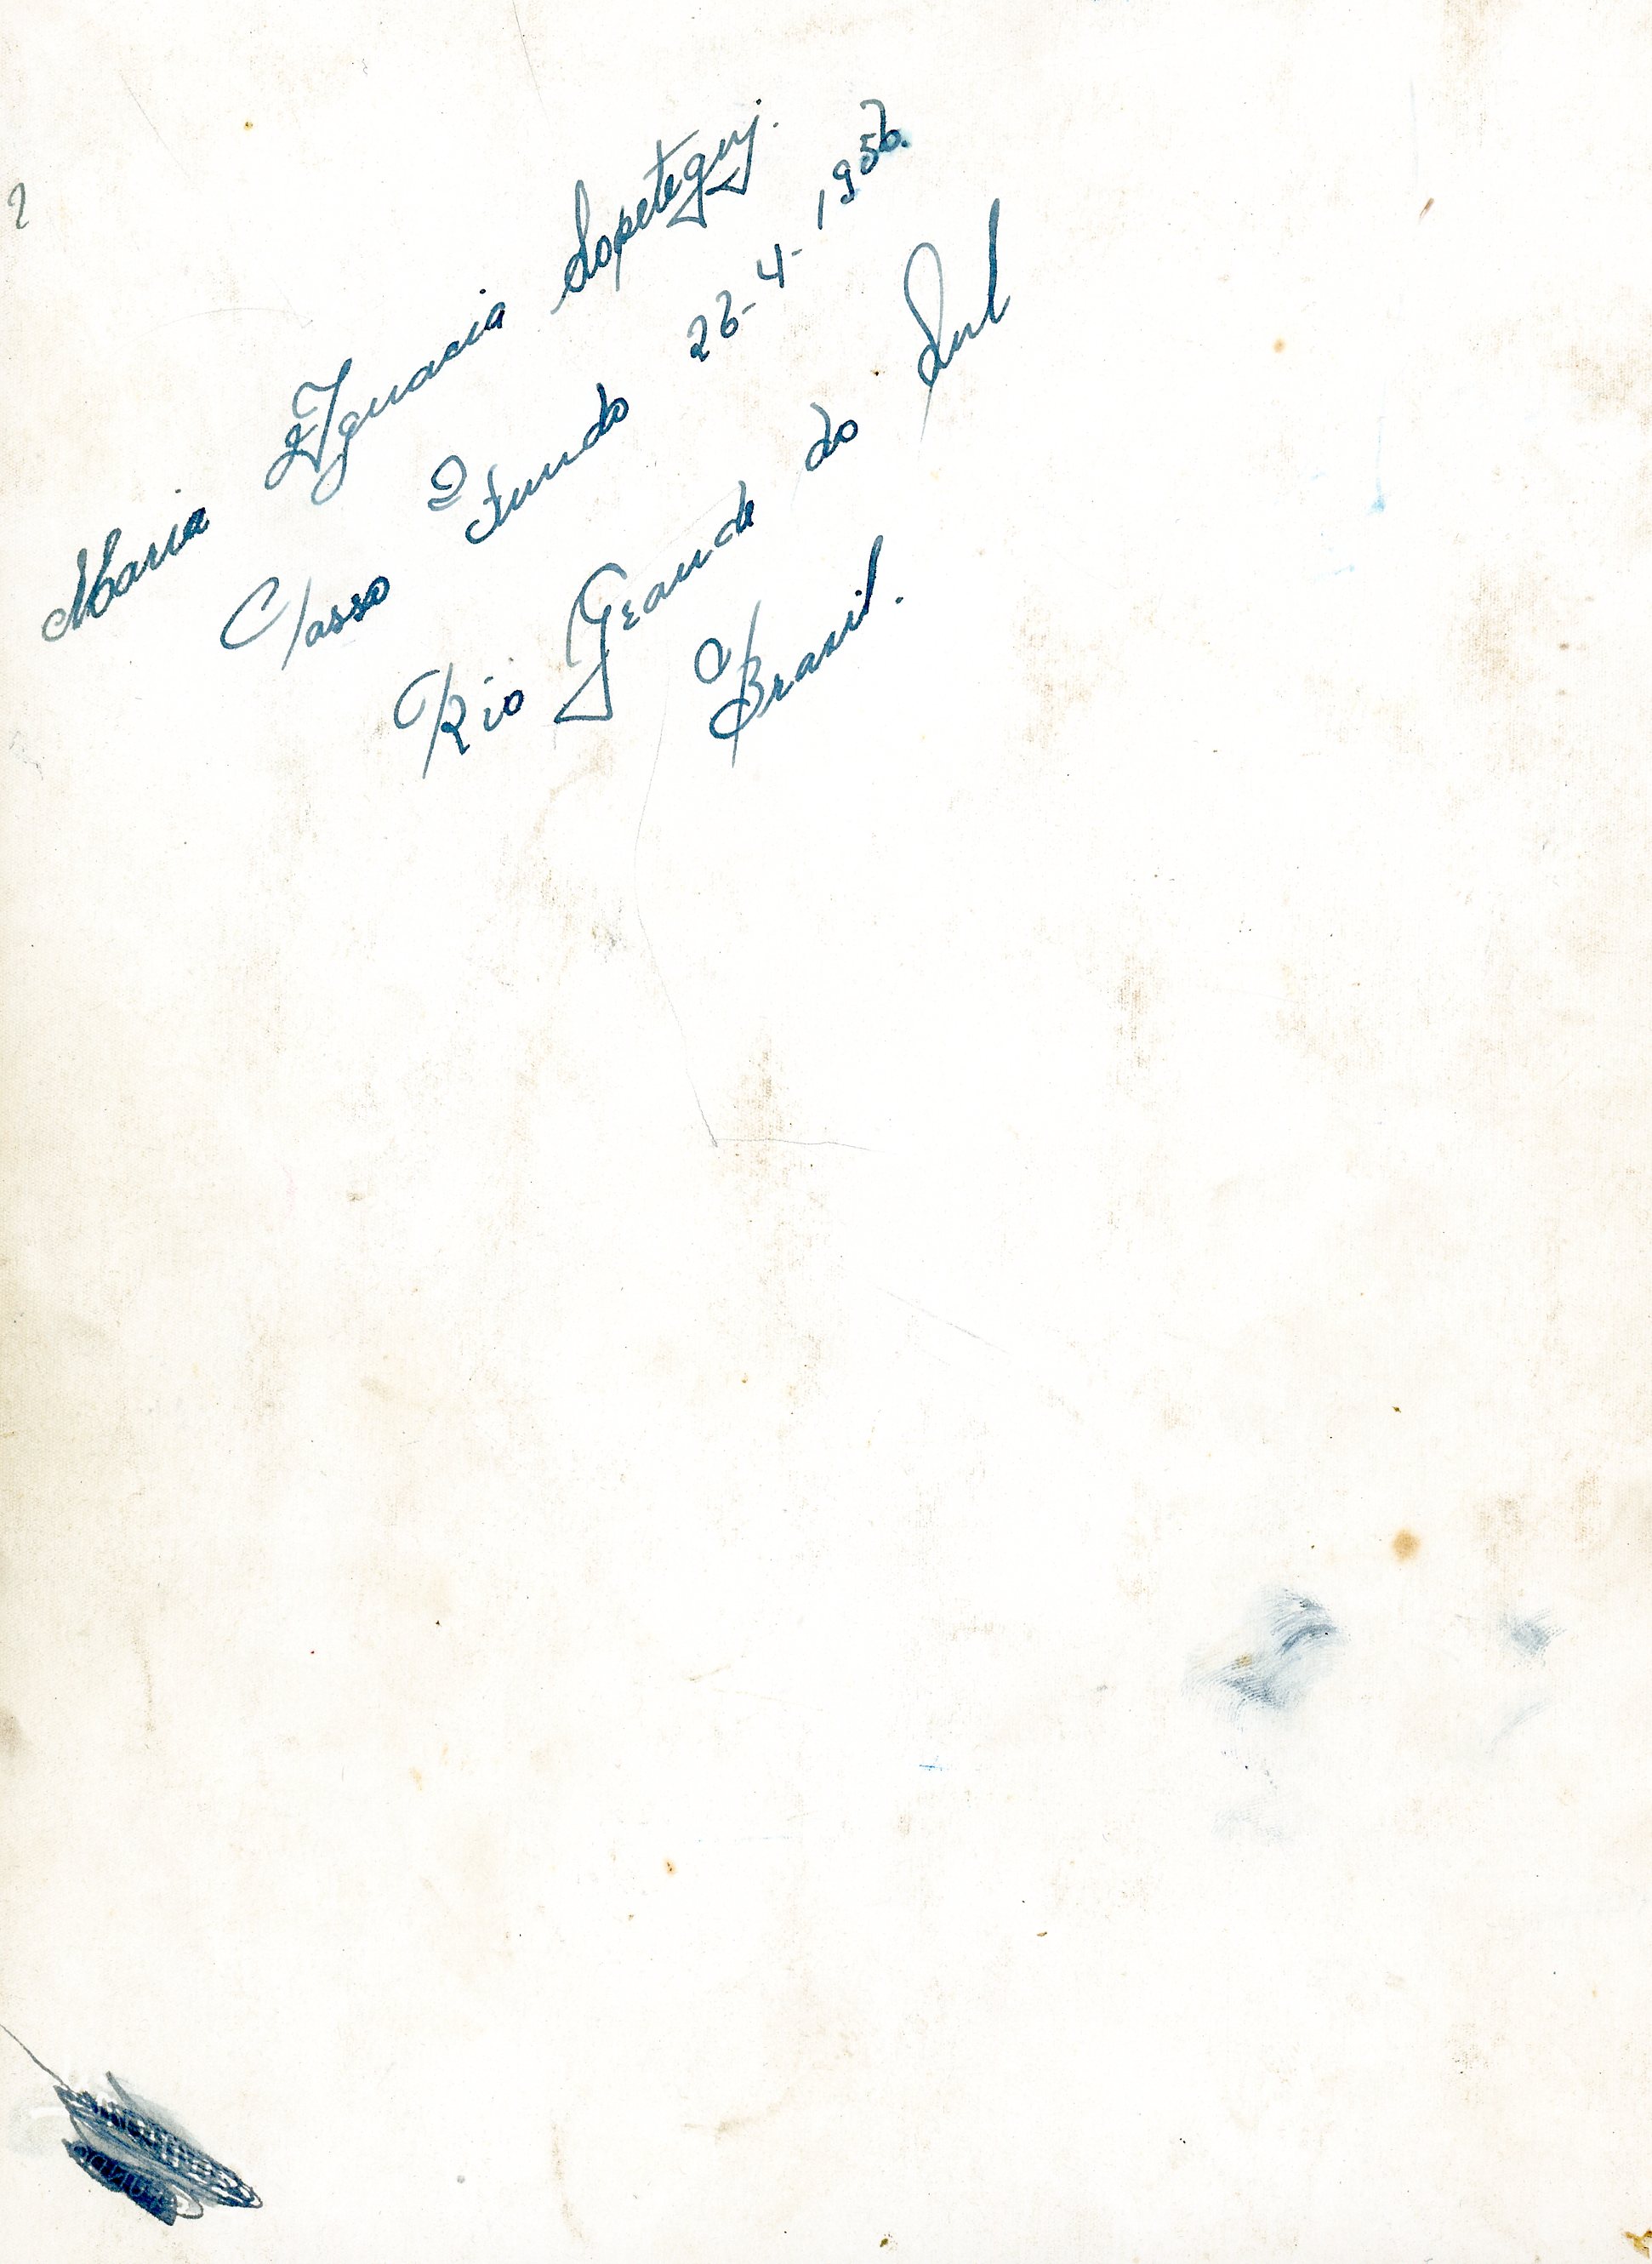 Maria Ignacia Lopeteguj.
Passo Fundo 26-4-1956.
Rio Grande do Sul
Brasil.